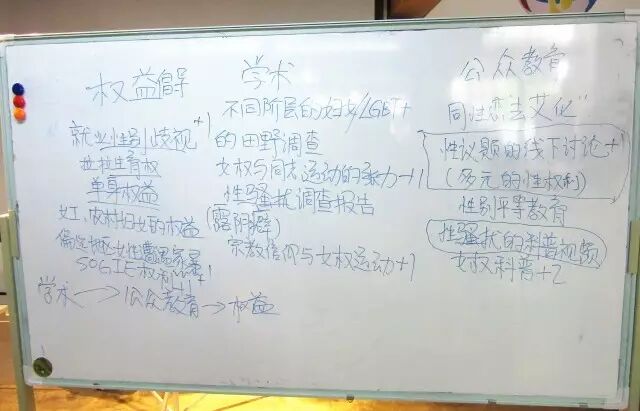 权益倡导
就业性别歧视+1
拉拉生育权
单身权益
女工,农村妇女的权益
SOGIE权利+1
学术
不同阶层的妇女/LGBT+
的田野调查
女权与同志运动的张力+1
性骚扰调查报告
(露阴癖)
宗教信仰与女权运动+1
公众教育
同性恋去艾化"
性议题的线下讨论+
(多元的性权利)
性别平等教育
性骚扰的科普视频
女权科普+2
学术→公众教育→权益